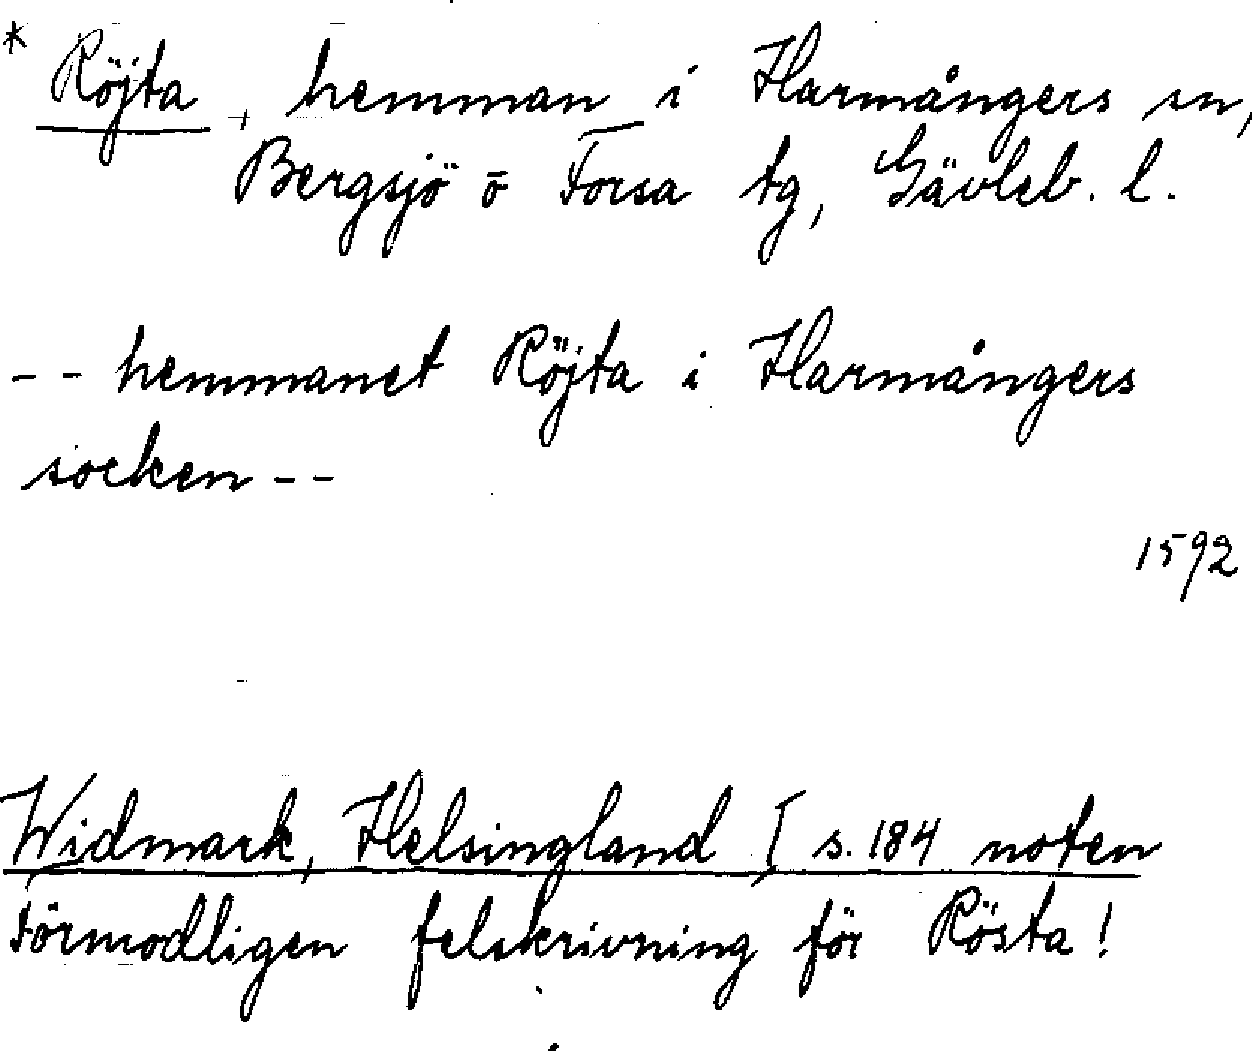 * Röjta, hemman i Harmångers sn,
Bergsjö ō Forsa tg, Gävleb. l.
-- hemmanet Röjta i Harmångers
socken --
1592
Widmark, Helsingland I s. 184 noten
Förmodligen felskrivning för Rösta!